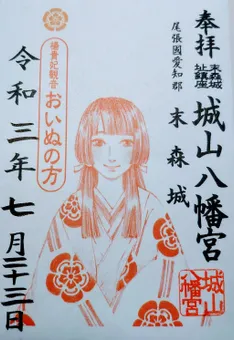 奉拝
末森城
址鎮座
城山八幡宮
尾張國愛知郡
末森城
おいぬの方
令和三年七月二十三日
城山
八幡宮